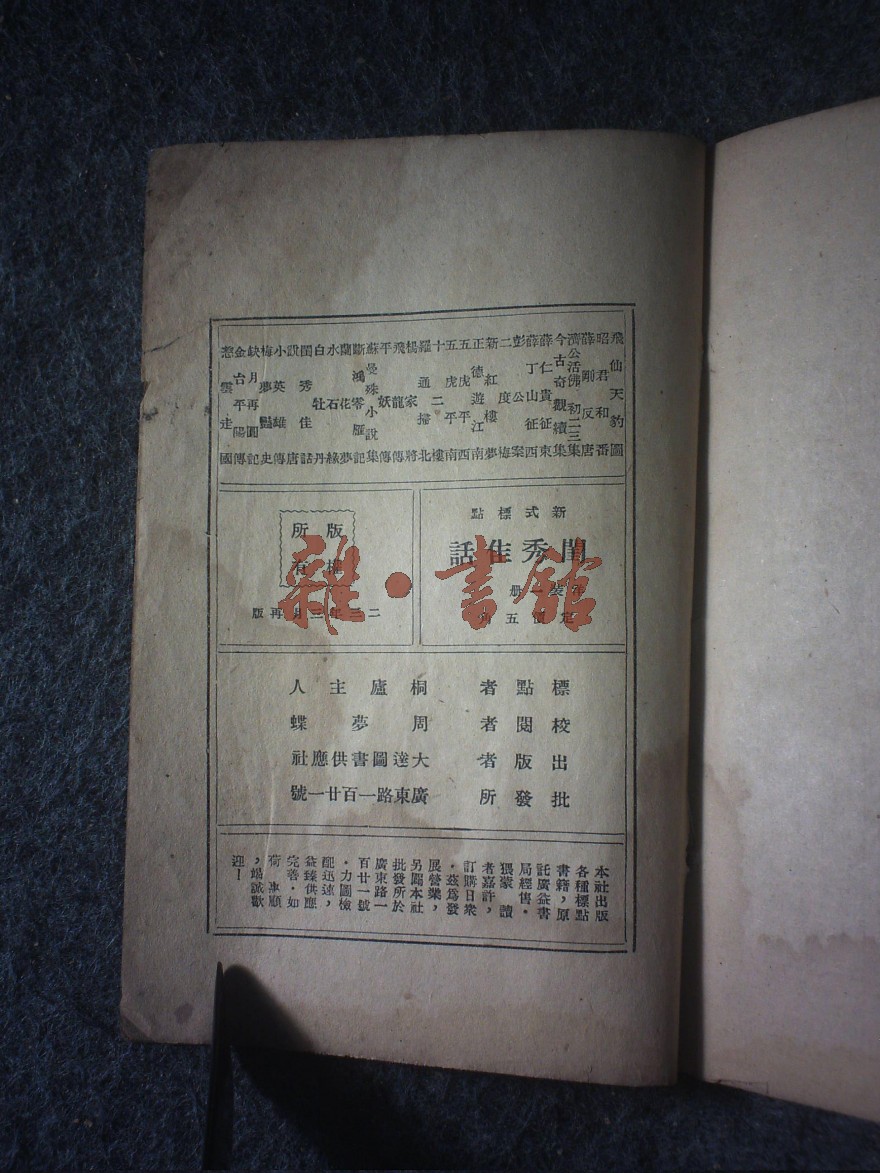 飛仙天豹圖
昭君和番
薛剛反唐
濟公活佛初二三集
今古奇觀續集
薛仁貴征東
薛丁山征西
彭公案
二度梅
新紅樓夢
正德遊江南
五虎平西
五虎平南
十二樓
羅通掃北
楊家將
飛龍傳
平妖傳
蘇曼殊小說集
斷鴻零雁記
蘭花夢
水石緣
白牡丹
閨秀佳話
說唐
小英雄傳
梅夢豔史
缺月再圓記
金台平陽傳
雲走國
新式標點
閨秀佳話
洋裝一册
定價五角
版權
所有
二三年三月再版
標點者 桐廬主人
校閱者 周夢蝶
出版者 大達圖書供應社
批發所 廣東路一百廿一號
本社出版
各種標點
書籍，原
託廣益書
局經售．
猥蒙讀
者嘉許，
訂購日衆
．茲爲發
展營業，
另闢本社
批發所於
廣東路一
百廿一號
．力圖檢
配迅速，
供應益臻
完善．如
荷惠顧
，竭誠歡
迎！
雜·書館